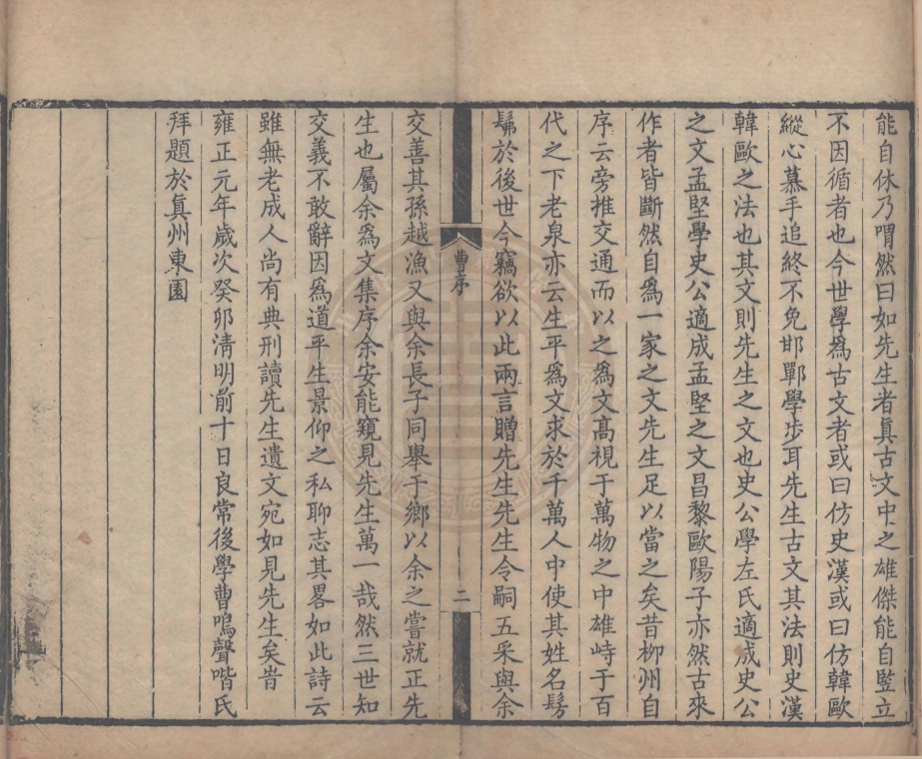 能自休乃喟然曰如先生者眞古文中之雄傑能自豎立
不因循者也今世學爲古文者或曰仿史漢或曰仿韓歐
縱心慕手追終不免邯鄲學步耳先生古文其法則史漢
韓歐之法也其文則先生之文也史公學左氏適成史公
之文孟堅學史公適成孟堅之文昌黎歐陽子亦然古來
作者皆斷然自爲一家之文先生足以當之矣昔柳州自
序云旁推交通而以之爲文高視于萬物之中雄峙于百
代之下老泉亦云生平爲文求於千萬人中使其姓名髣
髴於後世今竊欲以此兩言贈先生先生令嗣五采與余
曹序
二
交善其孫越漁又與余長子同舉于鄉以余之嘗就正先
生也屬余爲文集序余安能窺見先生萬一哉然三世知
交義不敢辭因爲道平生景仰之私聊志其畧如此詩云
雖無老成人尚有典刑讀先生遺文宛如見先生矣旹
雍正元年歲次癸卯清明前十日良常後學曹鳴聲喈氏
拜題於眞州東園